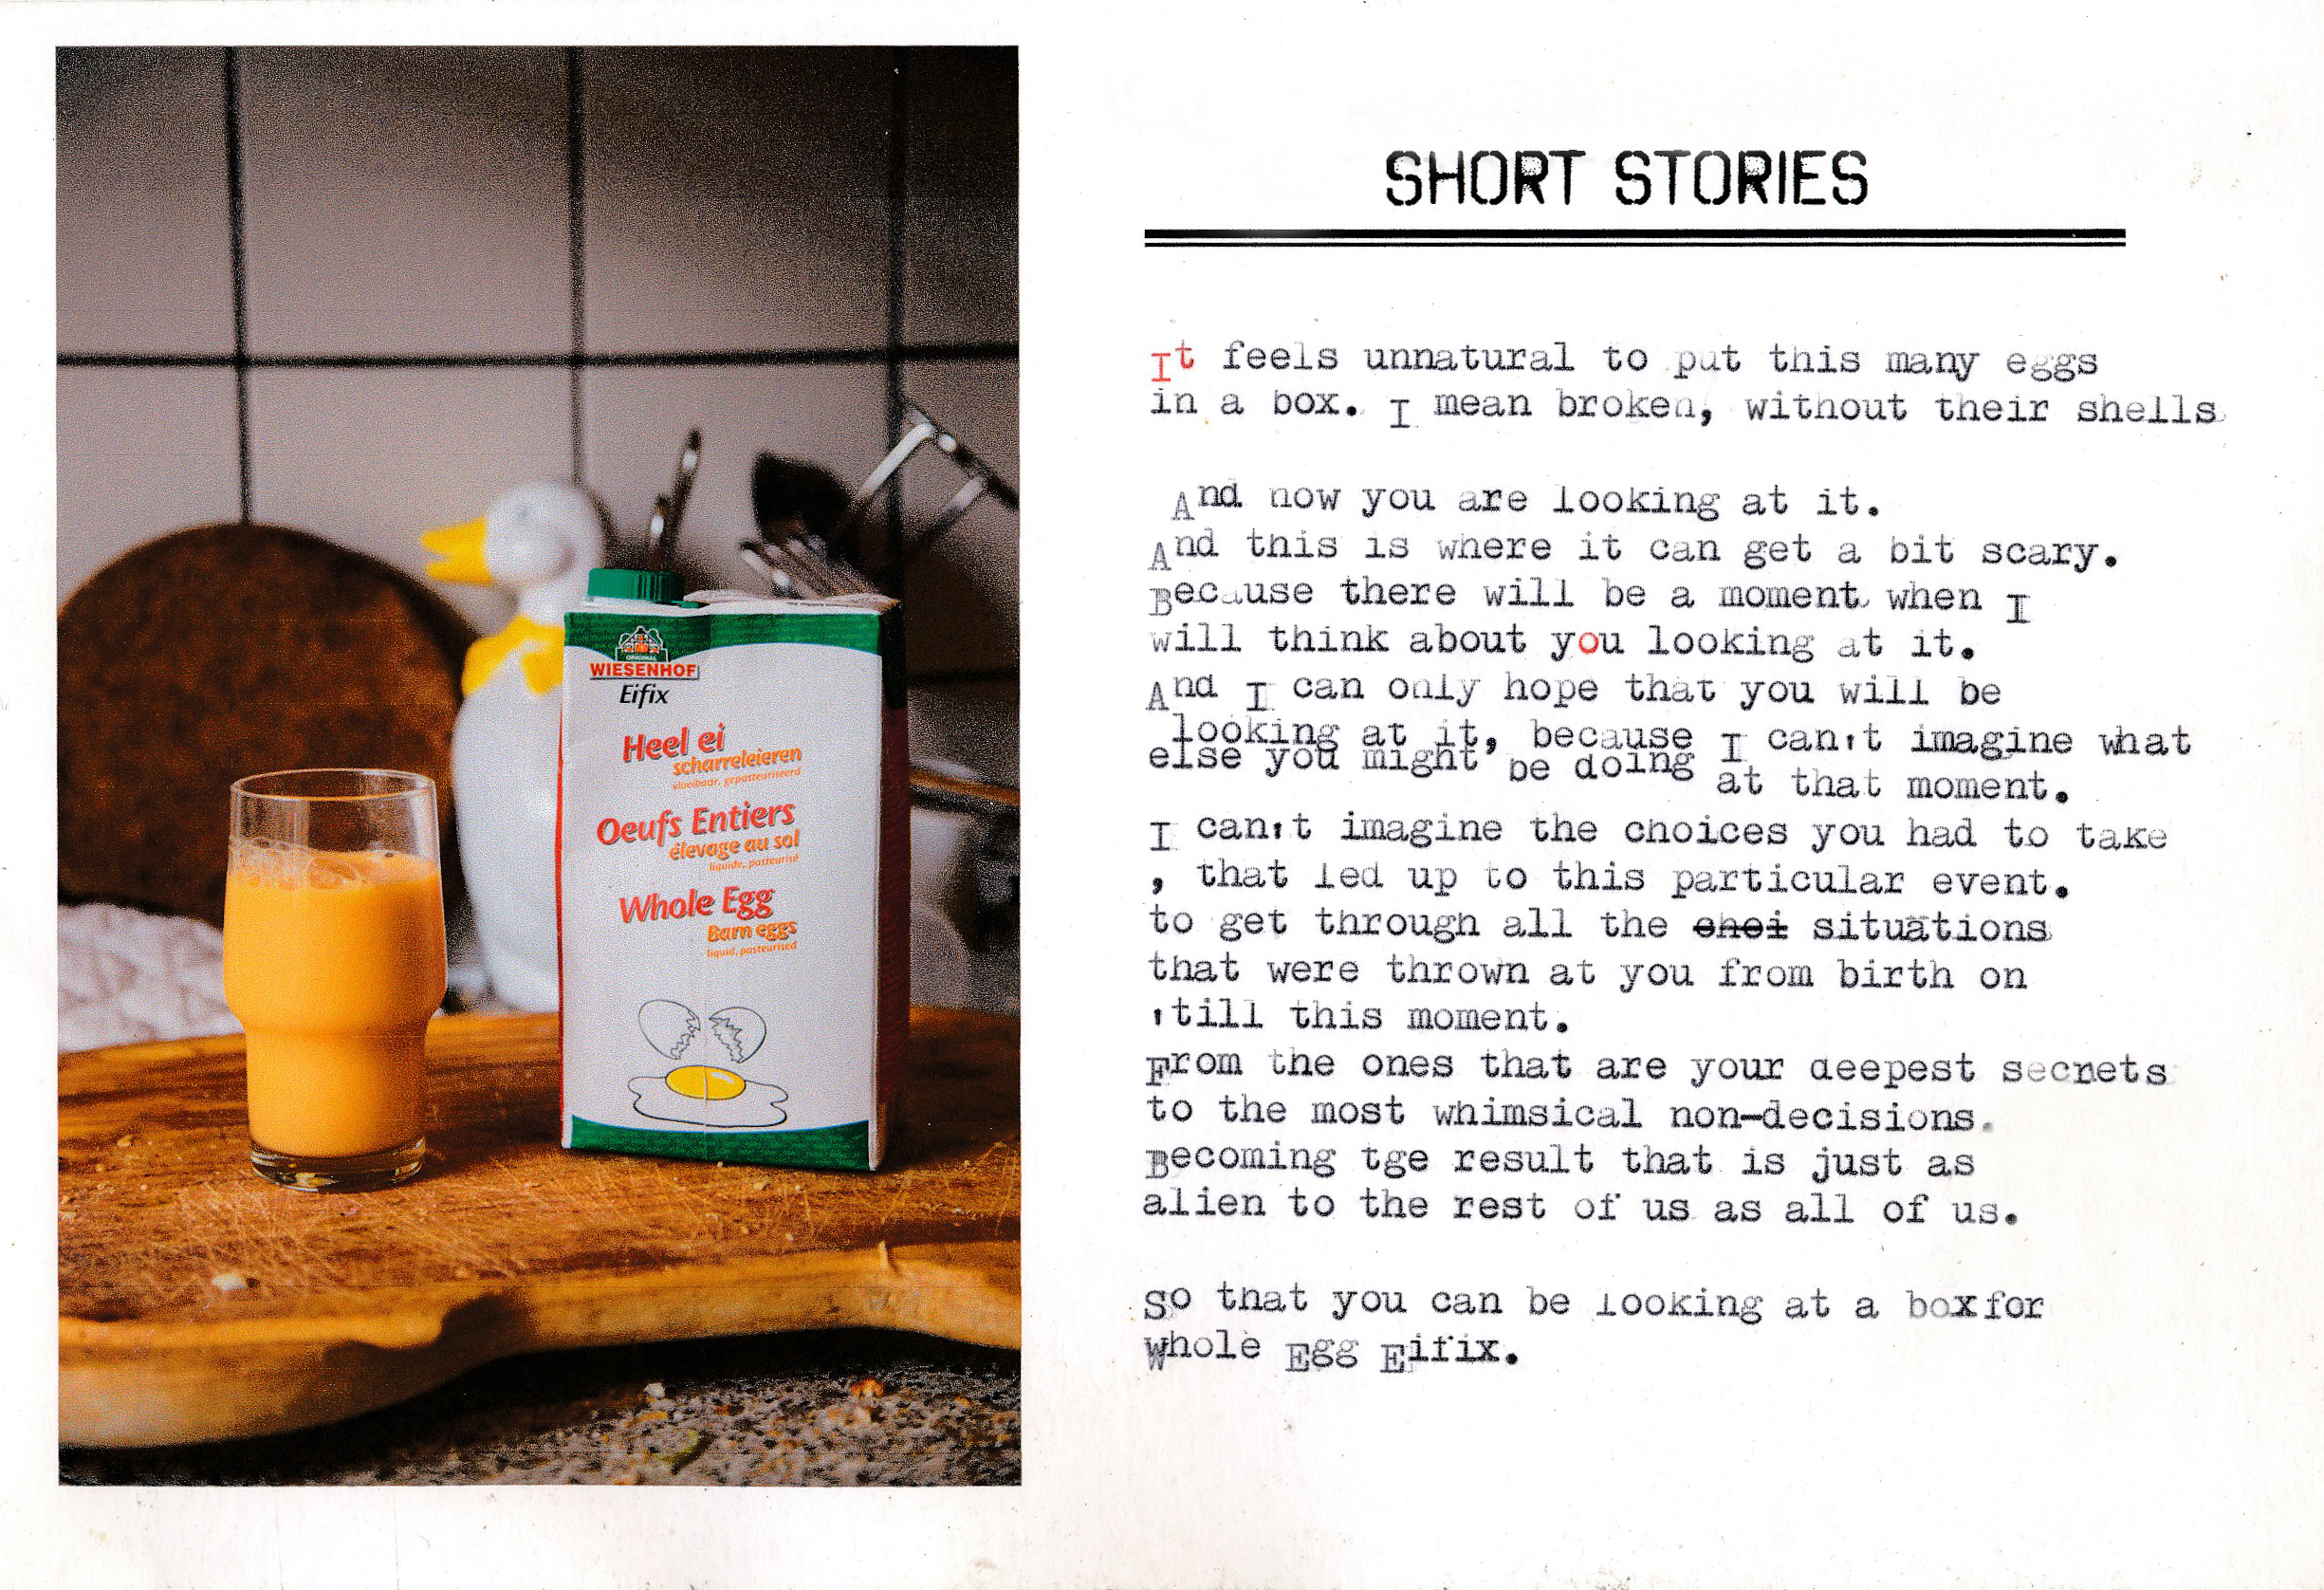 ORIGINAL
WIESENHOF
Eifix
Heel ei
scharreleieren
vloeibaar, gepasteuriseerd
Oeufs Entiers
élevage au sol
liquide, pasteurisé
Whole Egg
Barn eggs
liquid, pasteurised
SHORT STORIES
It feels unnatural to put this many eggs
in a box. I mean broken, without their shells
And now you are looking at it.
And this is where it can get a bit scary.
Because there will be a moment when I
will think about you looking at it.
And I can only hope that you will be
looking at it, because I can't imagine what
else you might be doing at that moment.
I can't imagine the choices you had to take
, that led up to this particular event.
to get through all the choi situations
that were thrown at you from birth on
'till this moment.
From the ones that are your deepest secrets
to the most whimsical non-decisions.
Becoming tge result that is just as
alien to the rest of us as all of us.
So that you can be looking at a boxfor
Whole Egg Eifix.